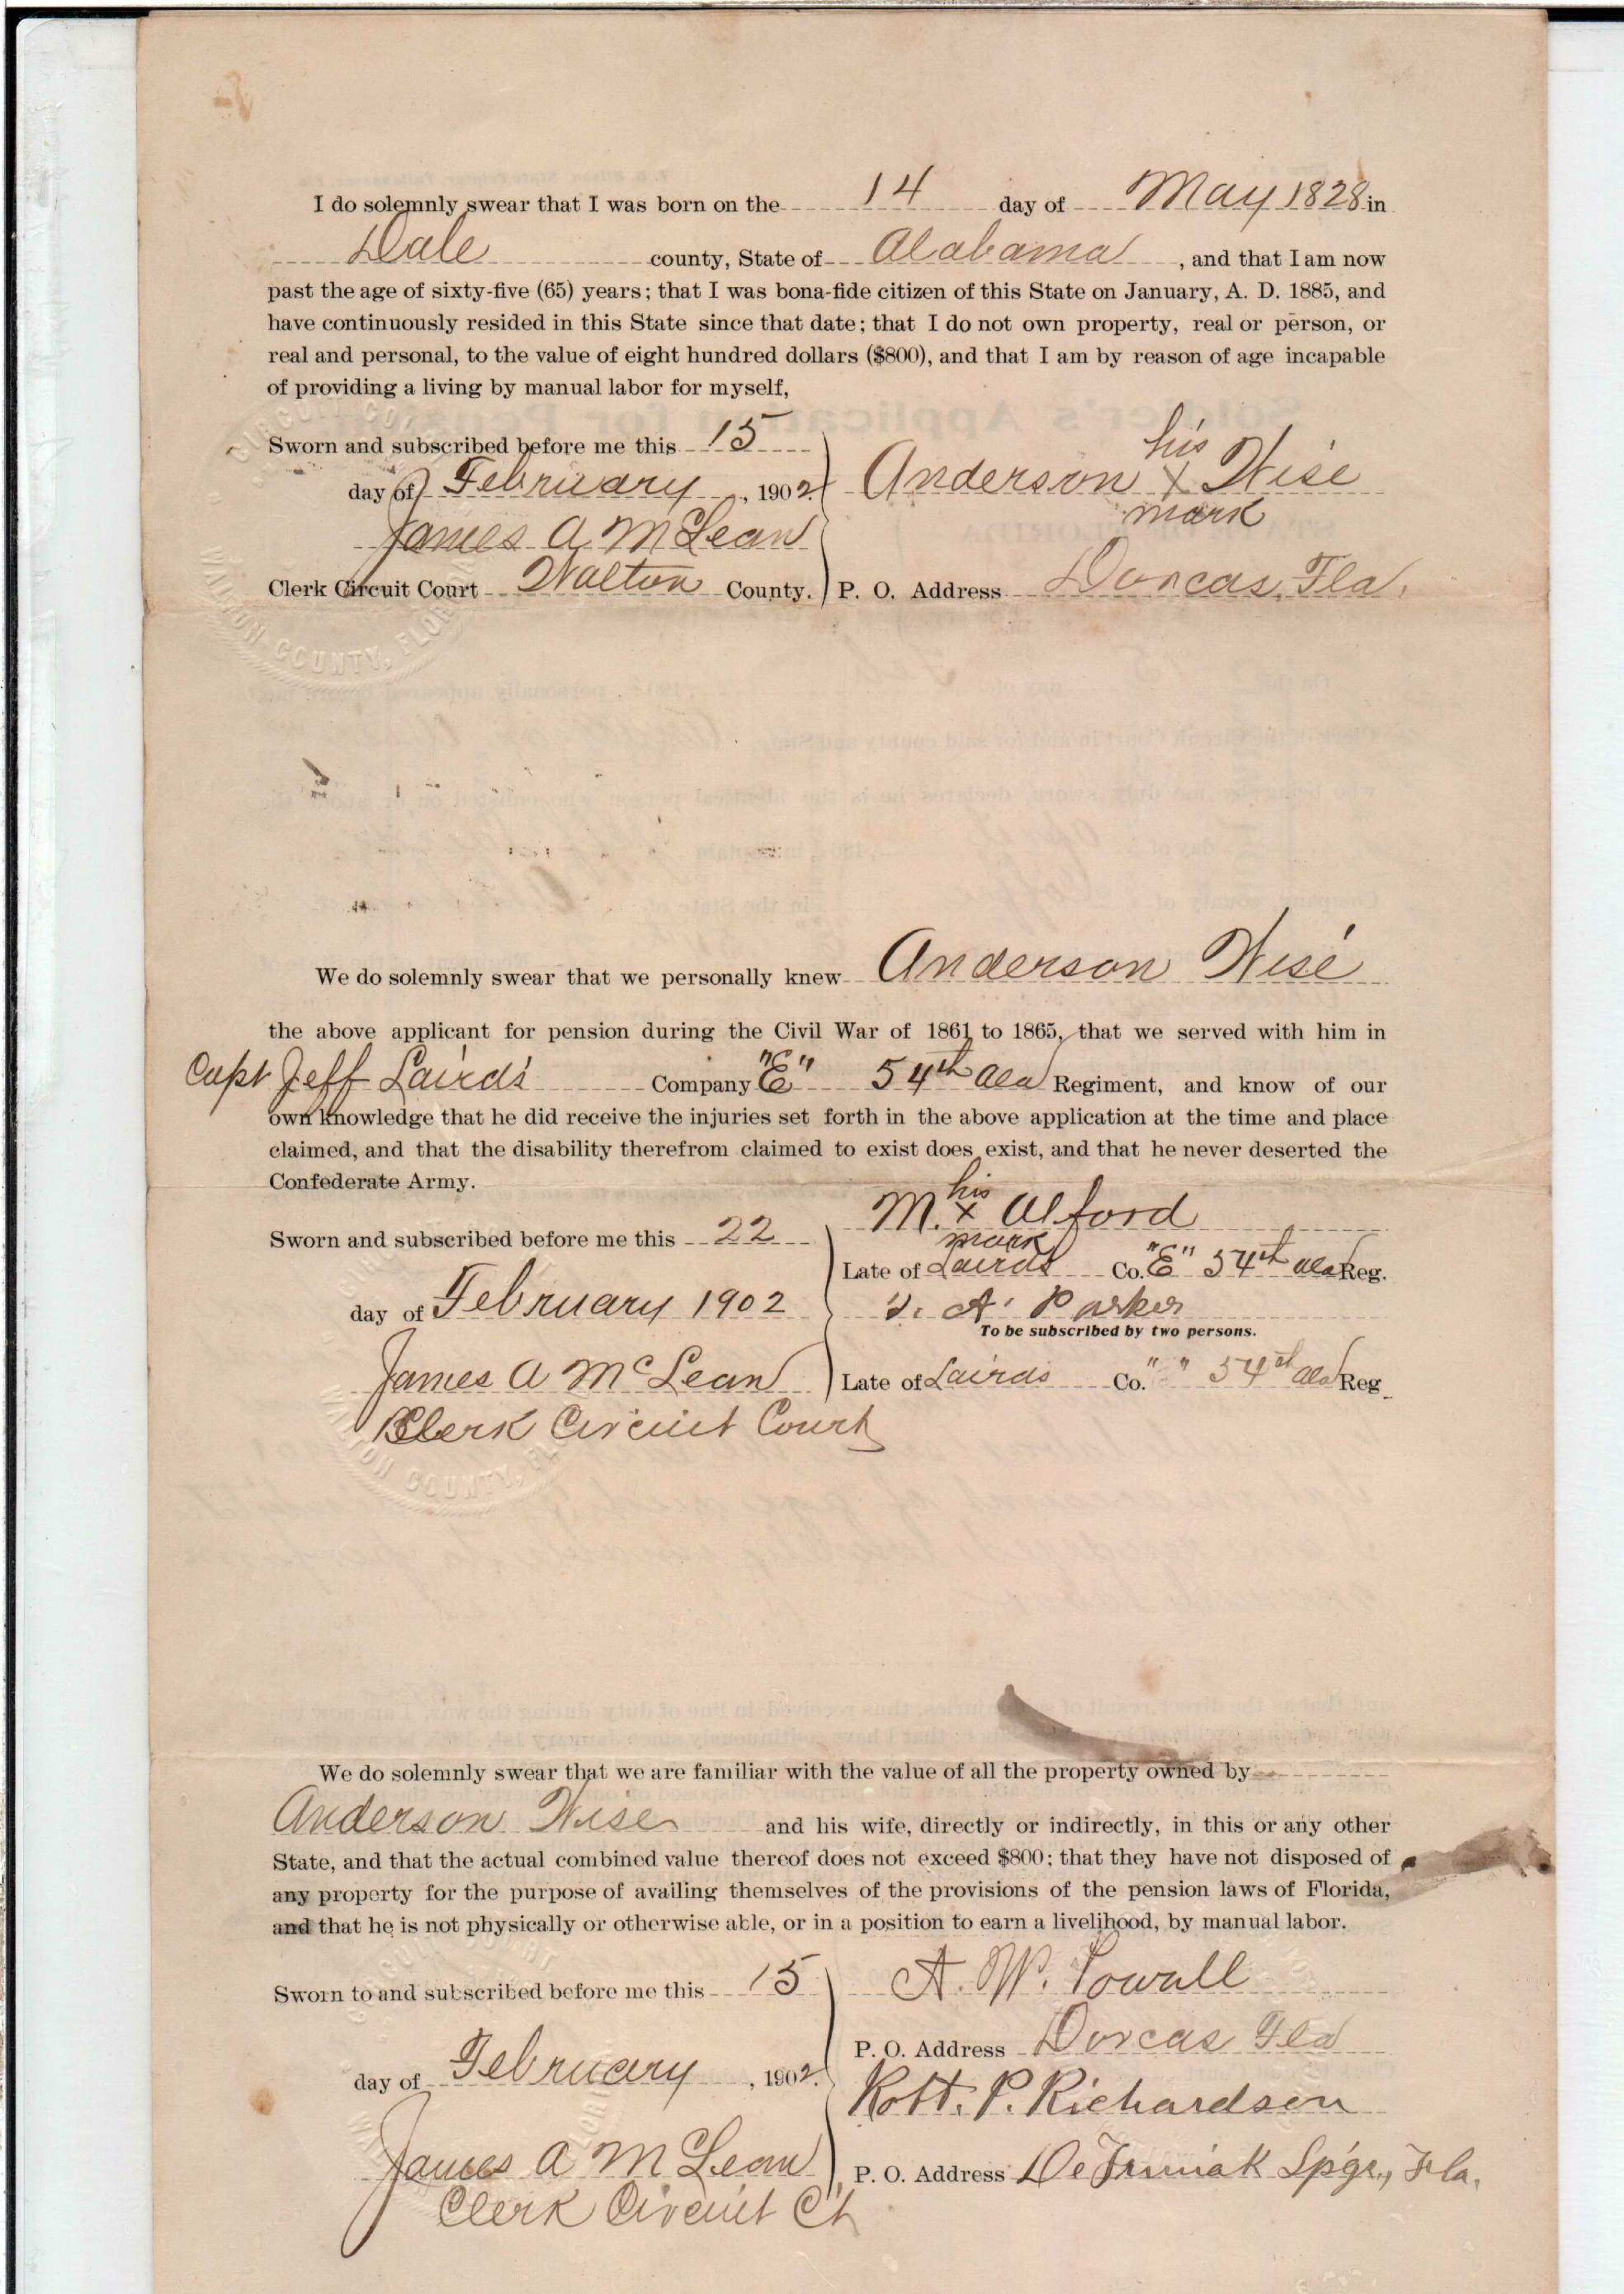 I do solemnly swear that I was born on the 14 day of May 1828 in
Dale county, State of Alabama, and that I am now
past the age of sixty-five (65) years; that I was bona-fide citizen of this State on January, A. D. 1885, and
have continuously resided in this State since that date; that I do not own property, real or person, or
real and personal, to the value of eight hundred dollars ($800), and that I am by reason of age incapable
of providing a living by manual labor for myself,
Sworn and subscribed before me this 15
day of February, 1902.
James A McLean
Clerk Circuit Court Walton County.
his
Anderson X Wise
mark
P. O. Address Dorcas, Fla.
WALTON COUNTY, FLORIDA
We do solemnly swear that we personally knew Anderson Wise
the above applicant for pension during the Civil War of 1861 to 1865, that we served with him in
Capt Jeff Laird's Company "E" 54th Ala Regiment, and know of our
own knowledge that he did receive the injuries set forth in the above application at the time and place
claimed, and that the disability therefrom claimed to exist does exist, and that he never deserted the
Confederate Army.
Sworn and subscribed before me this 22
day of February 1902
James A McLean
Clerk Circuit Court
his
M. x Alford
mark
Late of Lairds Co. "E" 54th Ala Reg.
A. Parker
To be subscribed by two persons.
Late of Lairds Co. " " 54th Ala Reg
COUNTY,
We do solemnly swear that we are familiar with the value of all the property owned by
Anderson Wise and his wife, directly or indirectly, in this or any other
State, and that the actual combined value thereof does not exceed $800; that they have not disposed of
any property for the purpose of availing themselves of the provisions of the pension laws of Florida,
and that he is not physically or otherwise able, or in a position to earn a livelihood, by manual labor.
Sworn to and subscribed before me this 15
day of February, 1902.
James A McLean
Clerk Circuit Ct
A. W.
P. O. Address Dorcas Fla
Robt. P. Richardson
P. O. Address De Funiak Spgs., Fla.